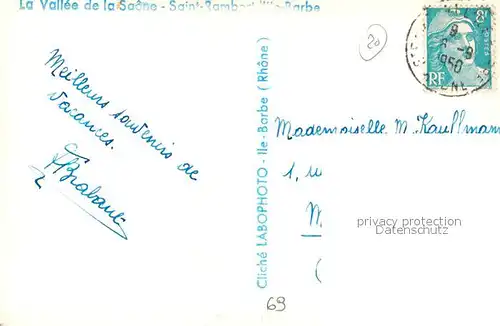 La Vallée de la Saône - Saint-Rambert l'Ile-Barbe
20
8F
9
-9
1950
RF
Meilleurs souvenirs de
vacances.
Cliché LABOPHOTO - Ile-Barbe (Rhône)
Mademoiselle M. Kauffmann
1,
M
(
privacy protection
Datenschutz
69